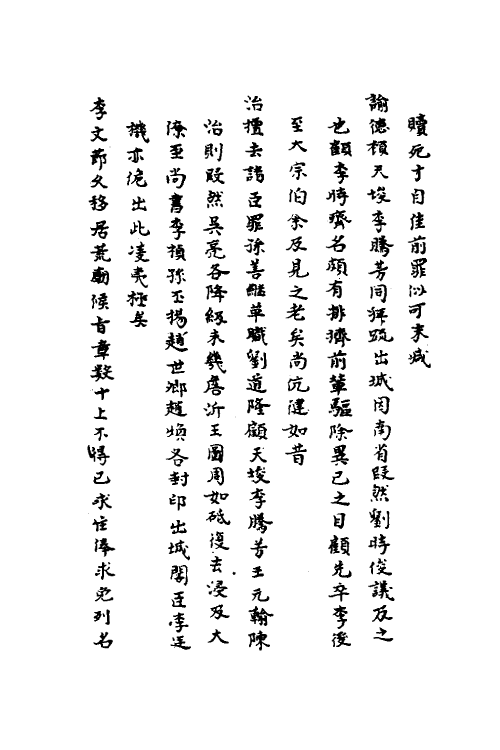 贖死寸自佳前罪似可末减
諭德顧天埈李騰芳同拜疏出城因南省段然劉時俊議及之
也顧李時齊名頗有排擠前輩驅除異己之目顧先卒李後
至大宗伯余及見之老矣尚伉健如昔
治擅去諸臣罪孫善繼革職劉道隆顧天埈李騰芳王元翰陳
治則段然吳亮各降級未幾唐沂王圖周如砥復去浸及大
僚至尚書李禎孫丕揚趙世卿趙煥各封印出城閣臣李廷
機亦俛出此凌夷極矣
李文節久移居荒廟候旨章數十上不得已求住俸求免列名